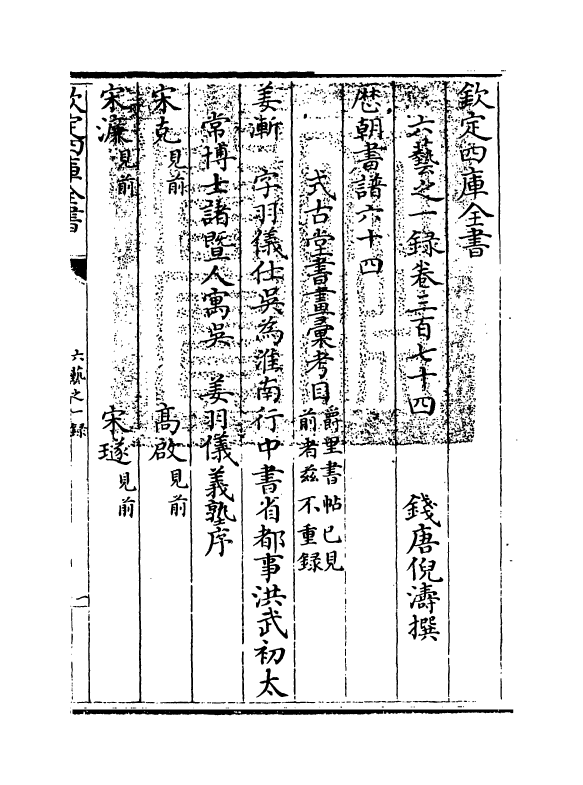 欽定四庫全書
六藝之一録卷三百七十四
錢唐倪濤撰
歴朝書譜六十四
式古堂書畫彙考目爵里書帖已見前者兹不重録
姜漸 字羽儀仕吳為淮南行中書省都事洪武初太
常博士諸暨人寓吳 姜羽儀義塾序
宋克見前 高啟見前
宋濂見前 宋璲見前
欽定四庫全書
六藝之一録
一